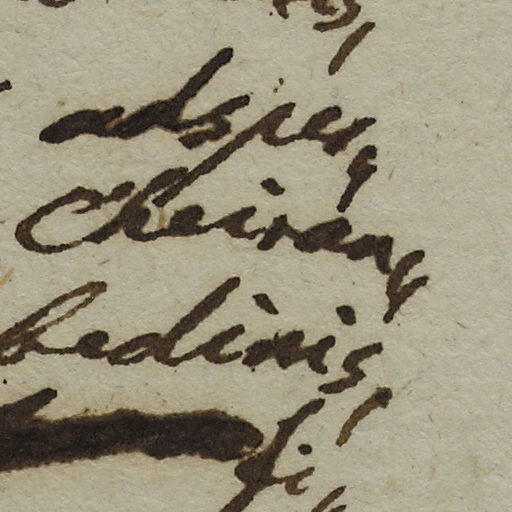 adsper,
Cheiran,
bedinis,
fi,